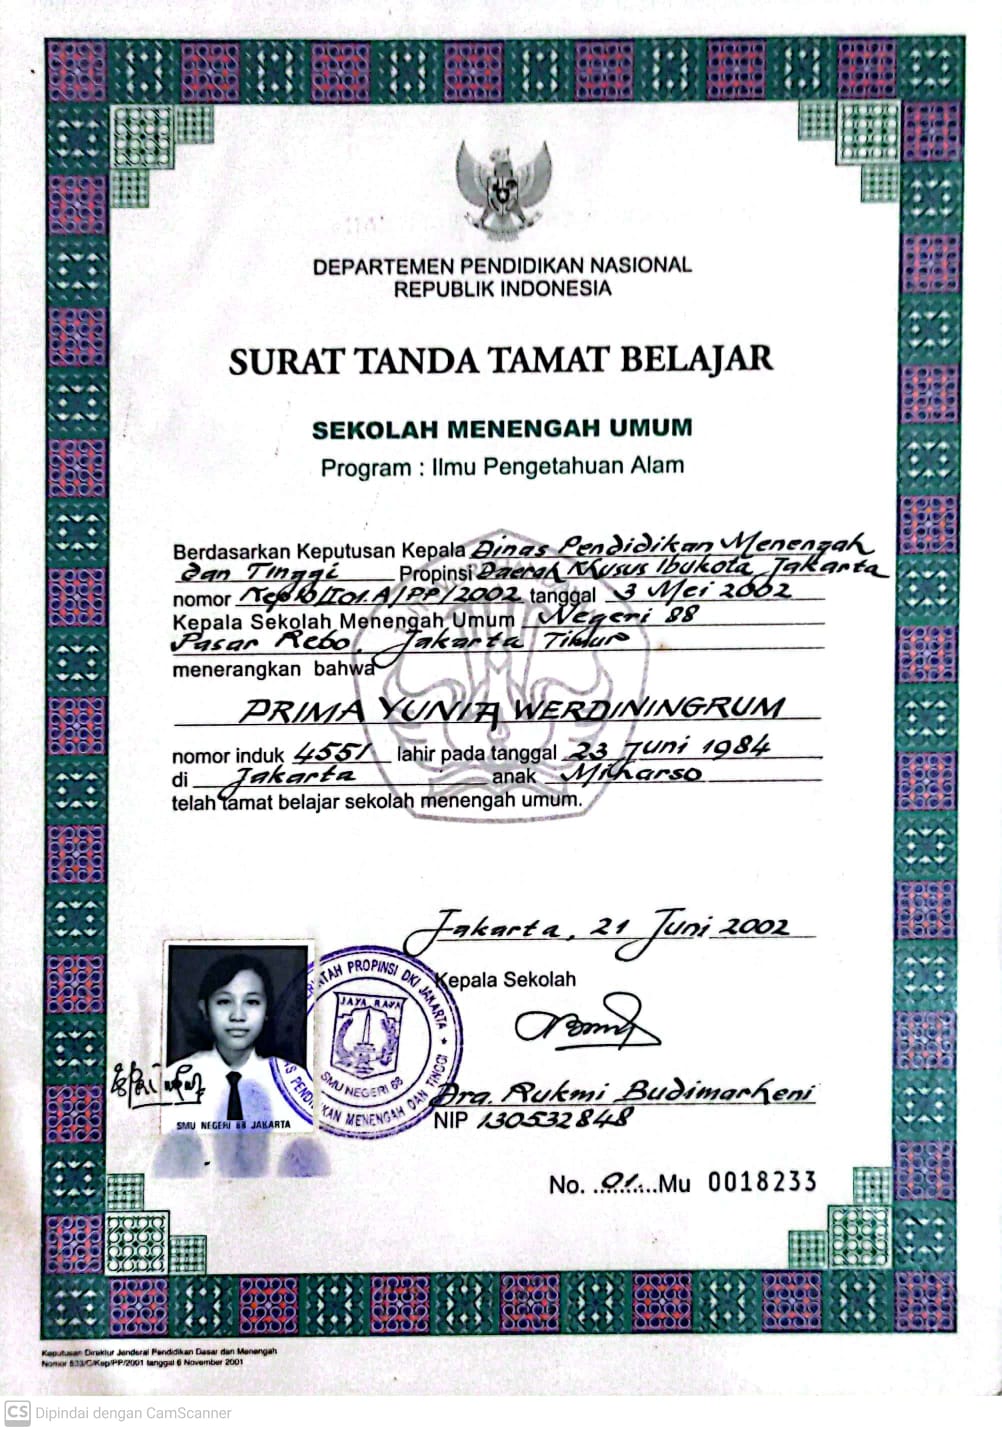 DEPARTEMEN PENDIDIKAN NASIONAL
REPUBLIK INDONESIA
SURAT TANDA TAMAT BELAJAR
SEKOLAH MENENGAH UMUM
Program : Ilmu Pengetahuan Alam
Berdasarkan Keputusan Kepala Dinas Pendidikan Menengah
dan Tinggi Propinsi Daerah Khusus Ibukota Jakarta
nomor tanggal 3 Mei 2002
Kepala Sekolah Menengah Umum Negeri 88
Pasar Rebo, Jakarta Timur
menerangkan bahwa
PRIMA YUNIA WERDININGRUM
nomor induk 4551 lahir pada tanggal 23 Juni 1984
di Jakarta anak Miharso
telah tamat belajar sekolah menengah umum.
Jakarta, 21 Juni 2002
Kepala Sekolah
PROPINSI DKI JAKARTA
JAYA RAYA
SMU NEGERI 88
MENENGAH DAN TINGGI
Dra. Rukmi Budimarheni
NIP 130532848
SMU NEGERI 88 JAKARTA
No. ..01....Mu 0018233
Keputusan Direktur Jenderal Pendidikan Dasar dan Menengah
Nomor 633/C/Kep/PP/2001 tanggal 6 November 2001
CS Dipindai dengan CamScanner